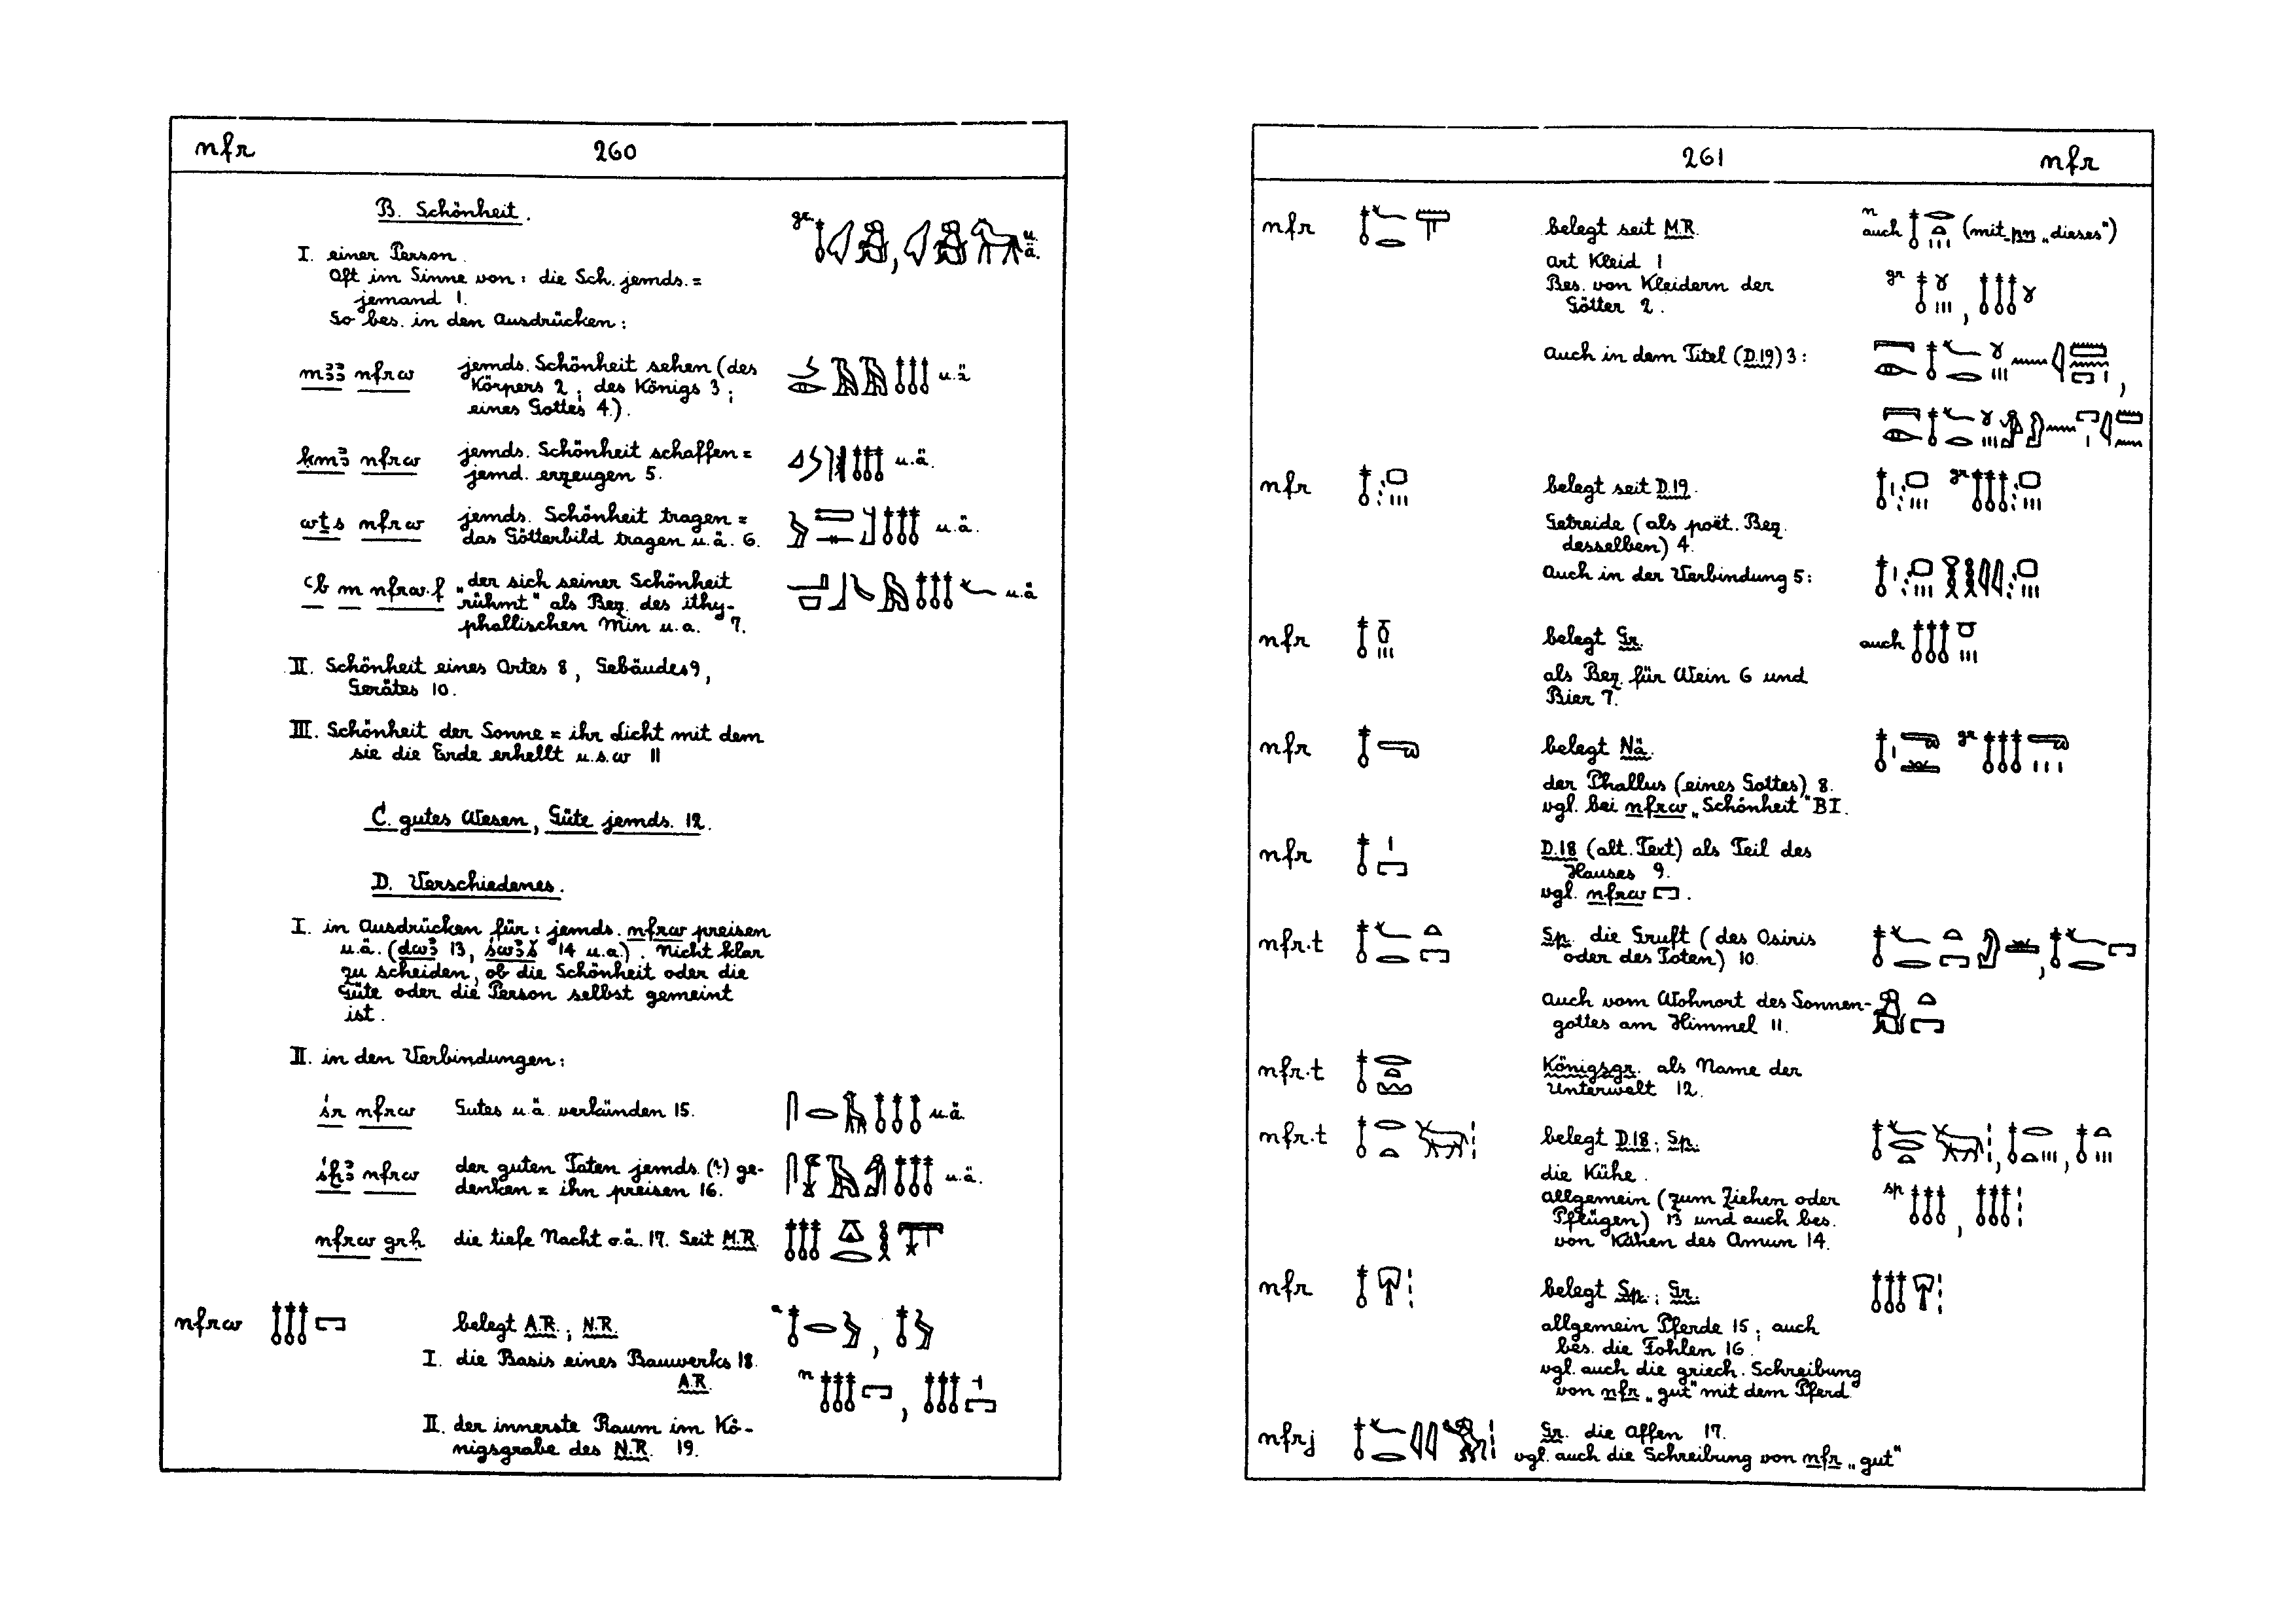 nfr 260
B. Schönheit.
I. einer Person.
Oft im Sinne von: die Sch. jemds. =
jemand 1.
So bes. in den Ausdrücken:
gr. , u. ä.
mꜣꜣ nfrw jemds. Schönheit sehen (des u.ä
Körpers 2; des Königs 3;
eines Gottes 4).
ḳmꜣ nfrw jemds. Schönheit schaffen = u.ä.
jemd. erzeugen 5.
wṯs nfrw jemds. Schönheit tragen = u.ä.
das Götterbild tragen u.ä. 6.
ꜥb m nfrw.f „der sich seiner Schönheit u.ä
rühmt“ als Bez. des ithy-
phallischen Min u.a. 7.
II. Schönheit eines Ortes 8, Gebäudes 9,
Gerätes 10.
III. Schönheit der Sonne = ihr Licht mit dem
sie die Erde erhellt u.s.w 11
C. gutes Wesen, Güte jemds. 12.
D. Verschiedenes.
I. in Ausdrücken für: jemds. nfrw preisen
u.ä. (dwꜣ 13, śwꜣš 14 u.a.). Nicht klar
zu scheiden, ob die Schönheit oder die
Güte oder die Person selbst gemeint
ist.
II. in den Verbindungen:
śr nfrw Gutes u.ä. verkünden 15. u.ä.
śḫꜣ nfrw der guten Taten jemds. (?) ge- u.ä.
denken = ihn preisen 16.
nfrw grḥ die tiefe Nacht o.ä. 17. Seit M.R.
nfrw belegt A.R.; N.R. a ,
I. die Basis eines Bauwerks 18.
A.R. n ,
II. der innerste Raum im Kö-
nigsgrabe des N.R. 19.
261 nfr
nfr belegt seit M.R. n auch (mit pn „dieses“)
Art Kleid 1
Bes. von Kleidern der gr ,
Götter 2.
Auch in dem Titel (D.19) 3: ,
nfr belegt seit D.19. gr
Getreide (als poët. Bez.
desselben) 4.
Auch in der Verbindung 5:
nfr belegt Gr. auch
als Bez. für Wein 6 und
Bier 7.
nfr belegt Nä. gr
der Phallus (eines Gottes) 8.
vgl. bei nfrw „Schönheit“ B I.
nfr D.18 (alt. Text) als Teil des
Hauses 9.
vgl. nfrw .
nfr.t Sp. die Gruft (des Osiris ,
oder des Toten) 10.
Auch vom Wohnort des Sonnen-
gottes am Himmel 11.
nfr.t Königsgr. als Name der
Unterwelt 12.
nfr.t belegt D.18; Sp. , ,
die Kühe.
allgemein (zum Ziehen oder sp ,
Pflügen) 13 und auch bes.
von Kühen des Amun 14.
nfr belegt Sp.; Gr.
allgemein Pferde 15; auch
bes. die Fohlen 16.
vgl. auch die griech. Schreibung
von nfr „gut“ mit dem Pferd.
nfrj Gr. die Affen 17.
vgl. auch die Schreibung von nfr „gut“